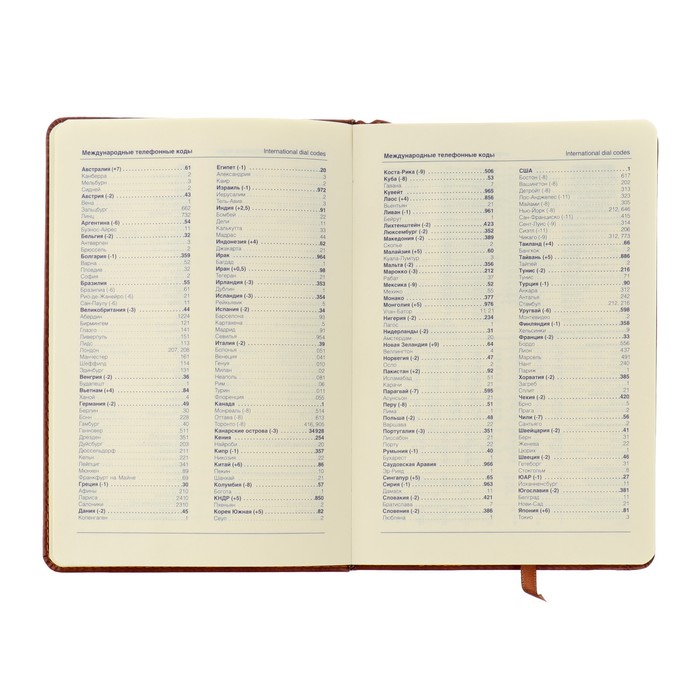 Международные телефонные коды International dial codes
Австралия (+7) 61
Канберра 2
Мельбурн 3
Сидней 2
Австрия (-2) 43
Вена 1
Зальцбург 662
Линц 732
Аргентина (-6) 54
Буэнос-Айрес 11
Бельгия (-2) 32
Антверпен 3
Брюссель 2
Болгария (-1) 359
Варна 52
Пловдив 32
София 2
Бразилия 55
Бразилиа (-6) 61
Рио-де-Жанейро (-6) 21
Сан-Паулу (-6) 11
Великобритания (-3) 44
Абердин 1224
Бирмингем 121
Глазго 141
Ливерпуль 151
Лидс 113
Лондон 207, 208
Манчестер 161
Шеффилд 114
Эдинбург 131
Венгрия (-2) 36
Будапешт 1
Вьетнам (+4) 84
Ханой 4
Германия (-2) 49
Берлин 30
Бонн 228
Гамбург 40
Ганновер 511
Дрезден 351
Дуйсбург 203
Дюссельдорф 211
Кельн 221
Лейпциг 341
Мюнхен 89
Франкфурт на Майне 69
Греция (-1) 30
Афины 210
Лариса 2410
Салоники 2310
Дания (-2) 45
Копенгаген 1
Египет (-1) 20
Александрия 3
Каир 2
Израиль (-1) 972
Иерусалим 2
Тель-Авив 3
Индия (+2,5) 91
Бомбей 22
Дели 11
Калькутта 33
Мадрас 44
Индонезия (+4) 62
Джакарта 21
Ирак 964
Багдад 1
Иран (+0,5) 98
Тегеран 21
Ирландия (-3) 353
Дублин 1
Исландия (-3) 354
Рейкьявик 5
Испания (-2) 34
Барселона 93
Картахена 5
Мадрид 91
Севилья 954
Италия (-2) 39
Болонья 051
Венеция 041
Генуя 010
Милан 02
Неаполь 081
Рим 06
Турин 011
Флоренция 055
Канада 1
Монреаль (-6) 514
Оттава (-8) 613
Торонто (-8) 416, 905
Канарские острова (-3) 34928
Кения 254
Найроби 20
Кипр (-1) 357
Никозия 22
Китай (+5) 86
Пекин 10
Шанхай 21
Колумбия (-8) 57
Богота 1
КНДР (+5) 850
Пхеньян 2
Корея Южная (+5) 82
Сеул 2
Международные телефонные коды International dial codes
Коста-Рика (-9) 506
Куба (-8) 53
Гавана 7
Кувейт 965
Лаос (+4) 856
Вьентьян 21
Ливан (-1) 961
Бейрут 1
Лихтенштейн (-2) 423
Люксембург (-2) 352
Македония (-2) 389
Скопье 2
Малайзия (+5) 60
Куала-Лумпур 3
Мальта (-2) 356
Марокко (-3) 212
Рабат 37
Мексика (-9) 52
Мехико 55
Монако 377
Монголия (+5) 976
Улан-Батор 11, 21
Нигерия (-2) 234
Лагос 1
Нидерланды (-2) 31
Амстердам 20
Новая Зеландия (+9) 64
Веллингтон 4
Норвегия (-2) 47
Осло
Пакистан (+2) 92
Исламабад 51
Карачи 21
Парагвай (-7) 595
Асунсьон 21
Перу (-8) 51
Лима 1
Польша (-2) 48
Варшава 22
Португалия (-3) 351
Лиссабон 21
Порту 22
Румыния (-1) 40
Бухарест 1
Саудовская Аравия 966
Сингапур (+5) 65
Сирия (-1) 963
Дамаск 11
Словакия (-2) 421
Братислава 2
Словения (-2) 386
Любляна 1
США 1
Бостон (-8) 617
Вашингтон (-8) 202
Детройт (-8) 313
Лос-Анджелес (-11) 323
Майами (-8) 305
Нью-Йорк (-8) 212, 646
Сан-Франциско (-11) 415
Сент-Луис (-9) 314
Сиэтл (-11) 206
Чикаго (-9) 312, 773
Таиланд (+4) 66
Бангкок 2
Тайвань (+5) 886
Тайпей 2
Тунис (-2) 216
Тунис 71
Турция (-1) 90
Анкара 312
Анталья 242
Стамбул 212, 216
Уругвай (-6) 598
Монтевидео 2
Финляндия (-1) 358
Хельсинки 9
Франция (-2) 33
Бордо 556
Лион 437
Марсель 491
Нант 240
Париж 1
Хорватия (-2) 385
Загреб 1
Сплит 21
Чехия (-2) 420
Брно 5
Прага 2
Чили (-7) 56
Сантьяго 2
Швейцария (-2) 41
Берн 31
Женева 22
Цюрих 1
Швеция (-2) 46
Гетеборг 31
Стокгольм 8
ЮАР (-1) 27
Йоханнесбург 11
Югославия (-2) 381
Белград 11
Нови-Сад 21
Япония (+6) 81
Токио 3